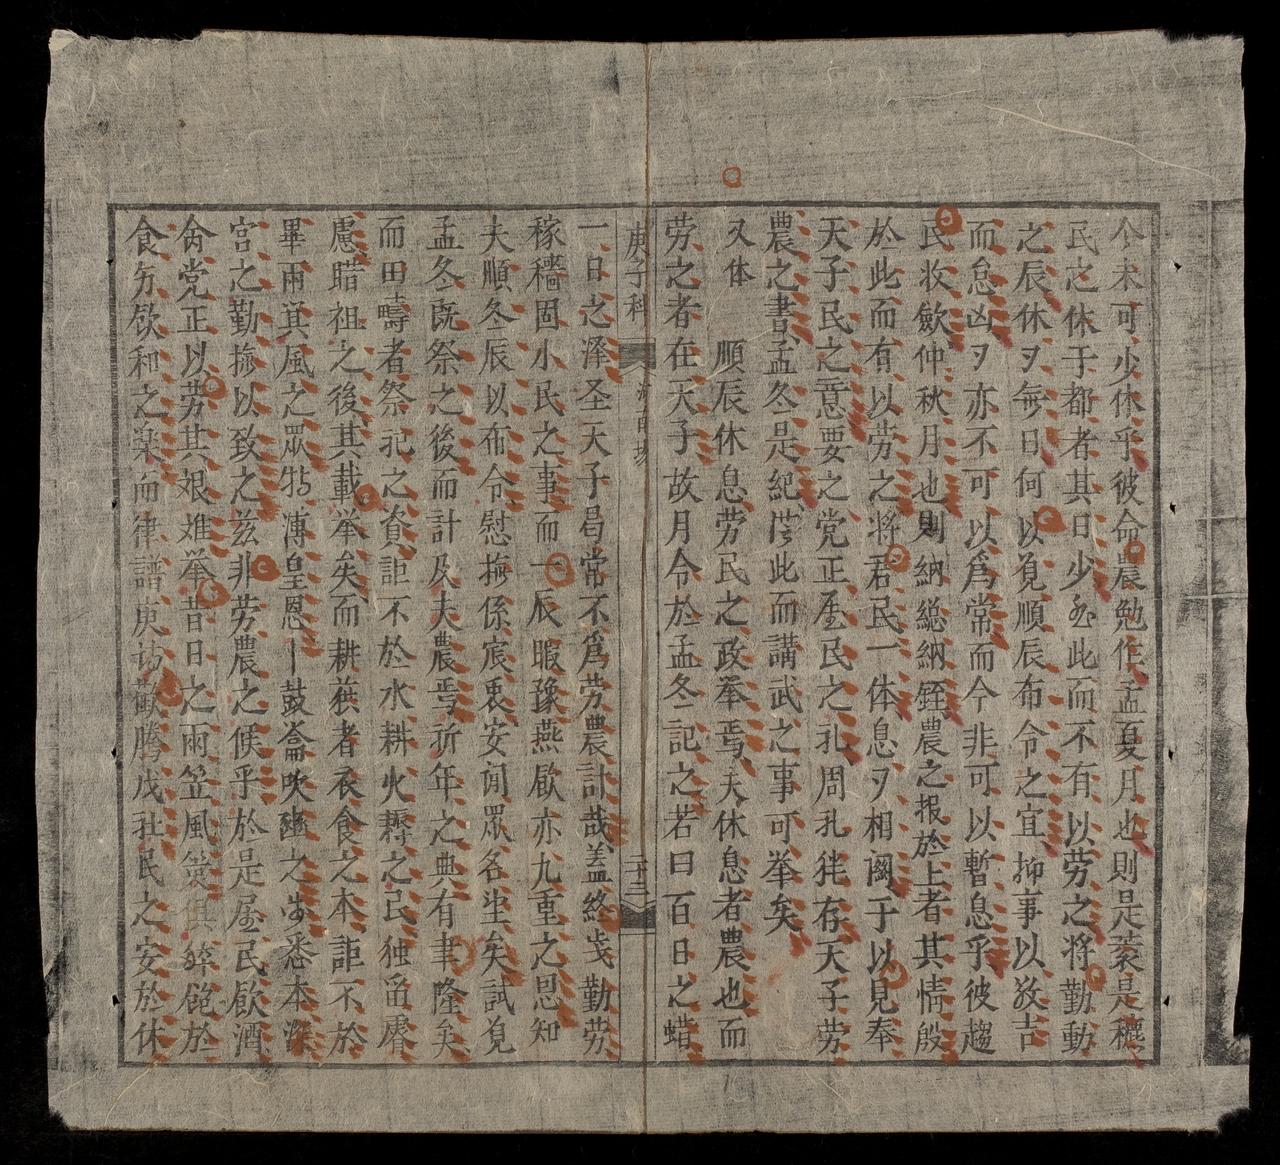 今未可少休乎彼命農勉作孟夏月也則是蓘是穮
民之休于都者其日少於此而不有以劳之将勤動
之辰休刃無日何以見順辰布令之宜抑事以敎吉
而怠凶刃亦不可以爲常而今非可以暫息乎彼趨
民收斂仲秋月也則納緫納銍農之报於上者其情殷
於此而有以劳之将君民一体息刃相関于以見奉
天子民之意要之党正屋民之礼周礼徃存天子劳
農之書孟冬是紀僅此而講武之事可举矣
又体　順辰休息劳民之政举焉夫休息者農也而
劳之者在天子故月令於孟冬記之若曰百日之蜡
庚子科　二十三
一日之泽圣天子曷常不爲劳農計哉盖終歲勤劳
稼穡固小民之事而一辰暇豫燕飮亦九重之思知
夫順冬辰以布令慰撫係宸衷安閒眾各坐矣試見
孟冬既祭之後而計及夫農焉祈年之典有聿隆矣
而田疇者祭祀之资詎不於水耕火耨之民独畱眷
慮腊祖之後其載举矣而耕蓘者衣食之本詎不於
畢雨箕風之眾特溥皇恩丨鼓龠吹豳之步悉本深
宮之勤撫以致之兹非劳農之候乎於是屋民飮酒
命党正以劳其艰难举昔日之雨笠風簑俱醉飽於
食旁飮和之药而律譜庚诗歡騰戊社民之安於休